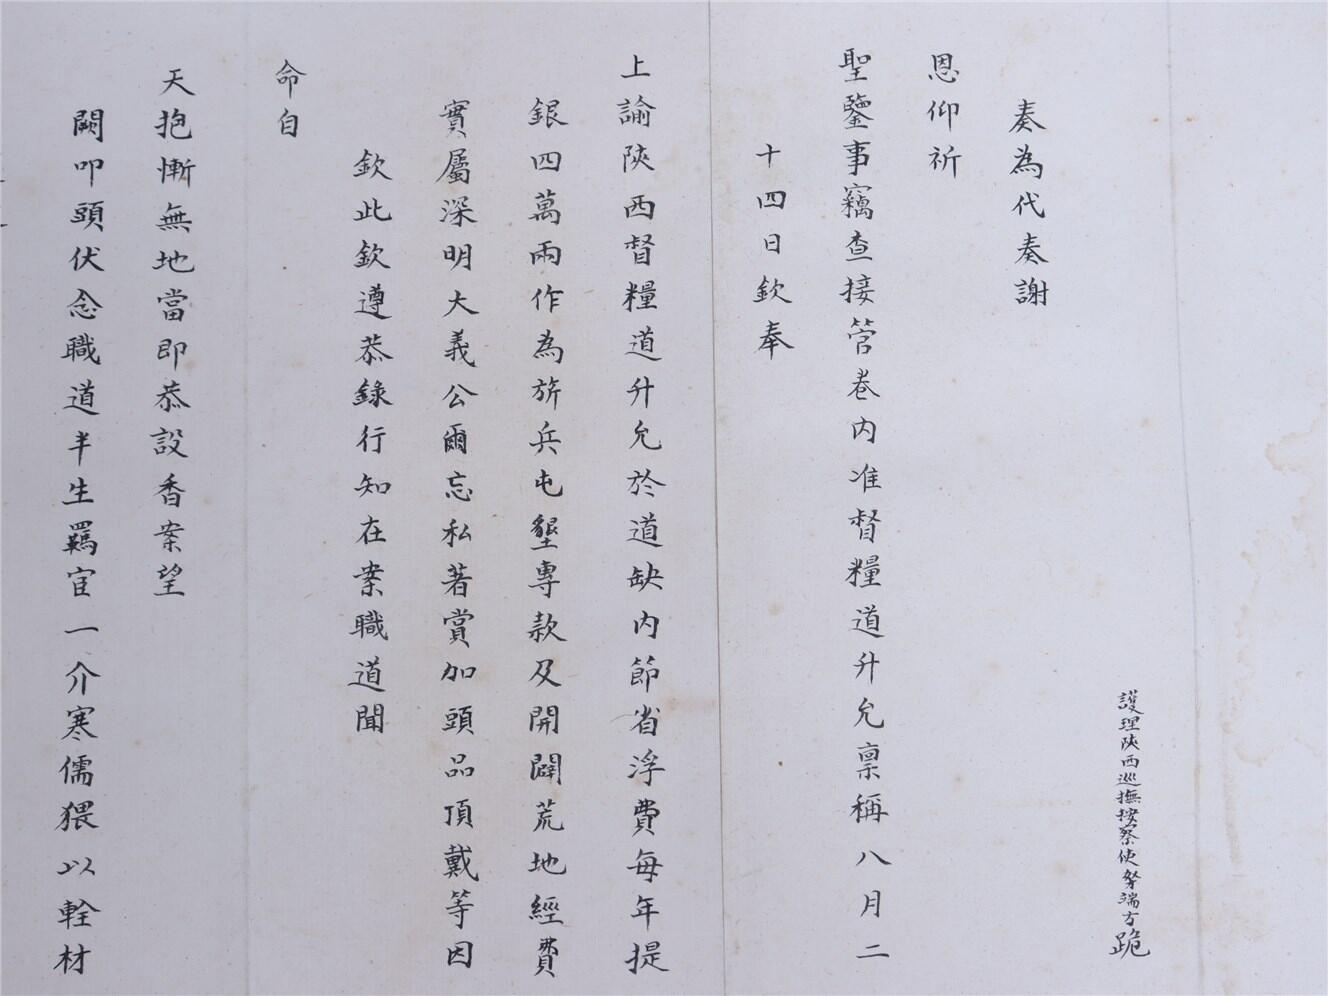 護理陝西巡撫按察使臣端方跪
奏為代奏謝
恩仰祈
聖鑒事竊查接管卷内准督糧道升允稟稱八月二
十四日欽奉
上諭陝西督糧道升允於道缺内節省浮費每年提
銀四萬兩作為旂兵屯墾專款及開闢荒地經費
實屬深明大義公爾忘私著賞加頭品頂戴等因
欽此欽遵恭錄行知在案職道聞
命自
天抱慚無地當即恭設香案望
闕叩頭伏念職道半生羈宦一介寒儒猥以輇材